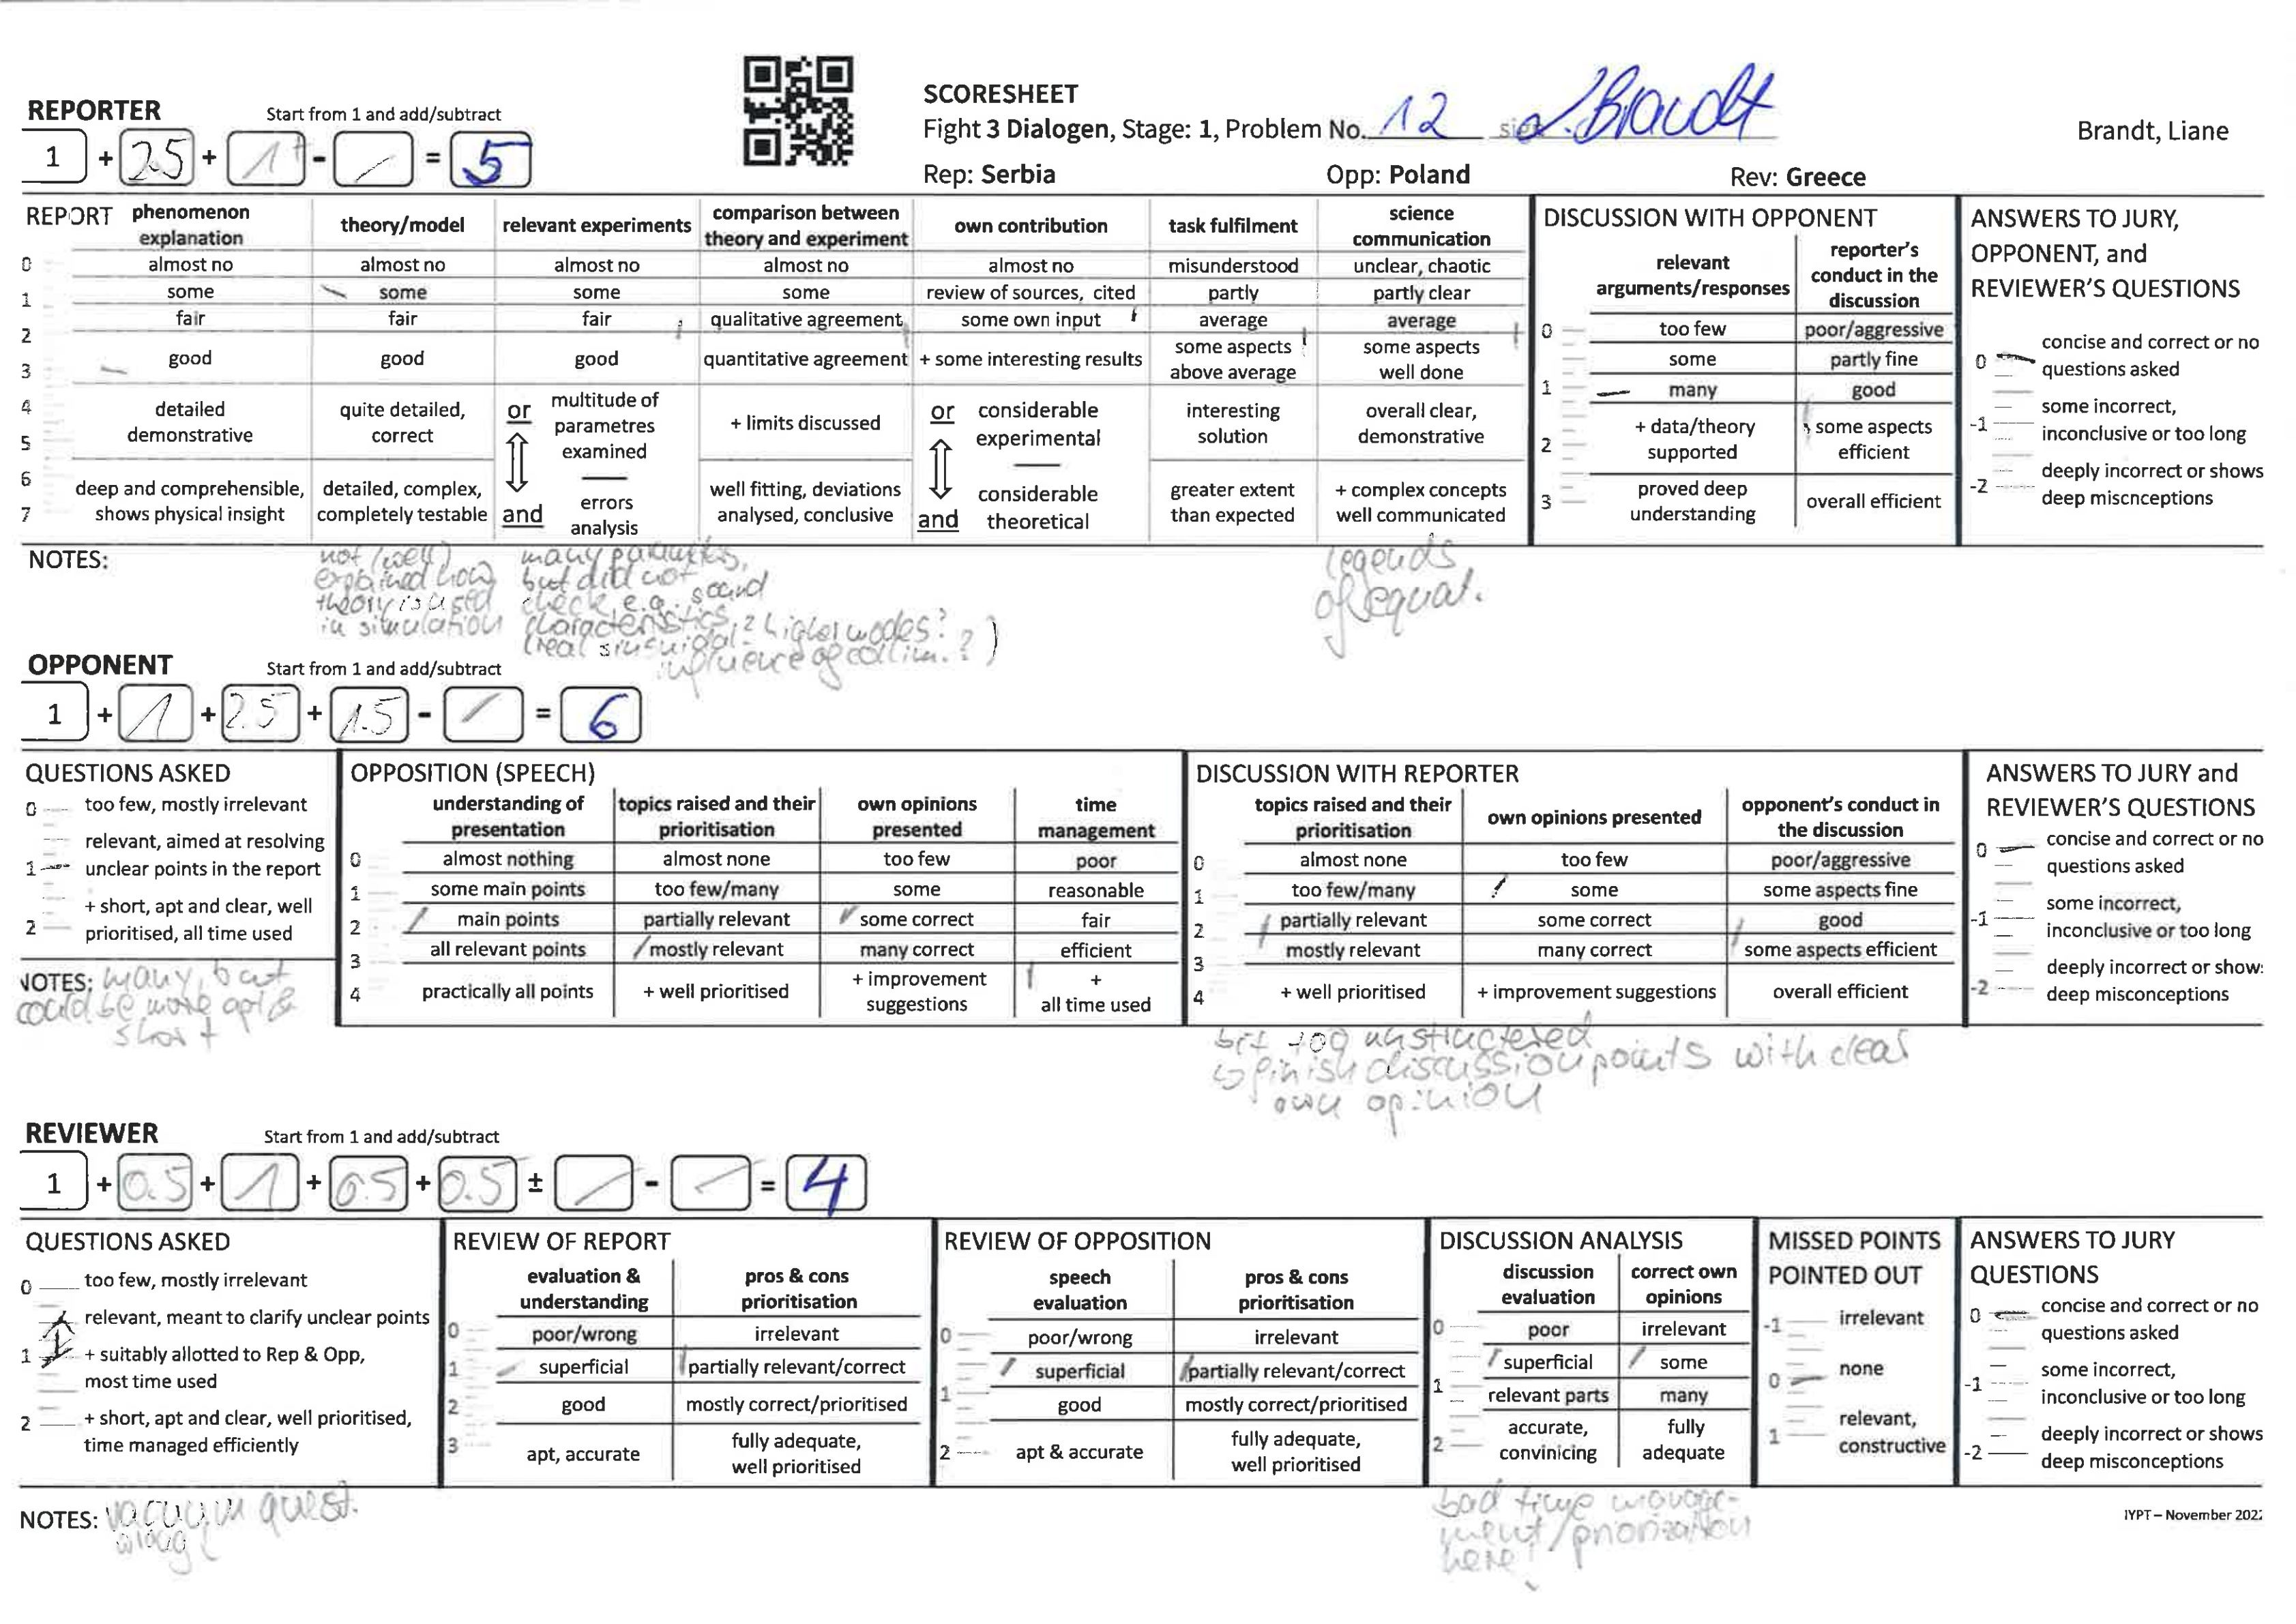 REPORTER Start from 1 and add/subtract
1 + 2.5 + 1+ - / = 5
SCORESHEET
Fight 3 Dialogen, Stage: 1, Problem No. 12 L. Brandt
Brandt, Liane
Rep: Serbia Opp: Poland Rev: Greece
REPORT phenomenon explanation theory/model relevant experiments comparison between theory and experiment own contribution task fulfilment science communication
0 almost no almost no almost no almost no almost no misunderstood unclear, chaotic
1 some some some some review of sources, cited partly partly clear
2 fair fair fair qualitative agreement some own input average average
3 good good good quantitative agreement + some interesting results some aspects above average some aspects well done
4 5 detailed demonstrative quite detailed, correct or multitude of parametres examined + limits discussed or considerable experimental interesting solution overall clear, demonstrative
6 7 deep and comprehensible, shows physical insight detailed, complex, completely testable and errors analysis well fitting, deviations analysed, conclusive and considerable theoretical greater extent than expected + complex concepts well communicated
DISCUSSION WITH OPPONENT
relevant arguments/responses reporter's conduct in the discussion
0 too few poor/aggressive
some partly fine
1 many good
2 + data/theory supported some aspects efficient
3 proved deep understanding overall efficient
ANSWERS TO JURY,
OPPONENT, and
REVIEWER'S QUESTIONS
0 concise and correct or no questions asked
-1 some incorrect, inconclusive or too long
-2 deeply incorrect or shows deep miscnceptions
NOTES:
not (well)
explained how
theory is used
in simulation
many parameters,
but did not
check, e.g. sound
characteristics, higher modes?
(real sinusuidal?
influence of collim.?)
legends
of equat.
OPPONENT Start from 1 and add/subtract
1 + 1 + 2.5 + 1.5 - / = 6
QUESTIONS ASKED
0 too few, mostly irrelevant
relevant, aimed at resolving
1 unclear points in the report
+ short, apt and clear, well
2 prioritised, all time used
NOTES: many, but
could be more apt &
short
OPPOSITION (SPEECH)
understanding of presentation topics raised and their prioritisation own opinions presented time management
0 almost nothing almost none too few poor
1 some main points too few/many some reasonable
2 main points partially relevant some correct fair
3 all relevant points mostly relevant many correct efficient
4 practically all points + well prioritised + improvement suggestions + all time used
DISCUSSION WITH REPORTER
topics raised and their prioritisation own opinions presented opponent's conduct in the discussion
0 almost none too few poor/aggressive
1 too few/many some some aspects fine
2 partially relevant some correct good
3 mostly relevant many correct some aspects efficient
4 + well prioritised + improvement suggestions overall efficient
bit too unstructered
finish discussion points with clear
own opinion
ANSWERS TO JURY and
REVIEWER'S QUESTIONS
0 concise and correct or no
questions asked
some incorrect,
-1 inconclusive or too long
deeply incorrect or show:
-2 deep misconceptions
REVIEWER Start from 1 and add/subtract
1 + 0.5 + 1 + 0.5 + 0.5 ± / - / = 4
QUESTIONS ASKED
0 too few, mostly irrelevant
relevant, meant to clarify unclear points
1 + suitably allotted to Rep & Opp,
most time used
2 + short, apt and clear, well prioritised,
time managed efficiently
REVIEW OF REPORT
evaluation & understanding pros & cons prioritisation
0 poor/wrong irrelevant
1 superficial partially relevant/correct
2 good mostly correct/prioritised
3 apt, accurate fully adequate, well prioritised
REVIEW OF OPPOSITION
speech evaluation pros & cons prioritisation
0 poor/wrong irrelevant
superficial partially relevant/correct
1 good mostly correct/prioritised
2 apt & accurate fully adequate, well prioritised
DISCUSSION ANALYSIS
discussion evaluation correct own opinions
0 poor irrelevant
superficial some
1 relevant parts many
2 accurate, convinicing fully adequate
MISSED POINTS
POINTED OUT
-1 irrelevant
0 none
1 relevant, constructive
ANSWERS TO JURY
QUESTIONS
0 concise and correct or no
questions asked
-1 some incorrect,
inconclusive or too long
deeply incorrect or shows
-2 deep misconceptions
NOTES: vacuum quest.
wrong!
bad time manage-
ment/priorization
here!
IYPT – November 202